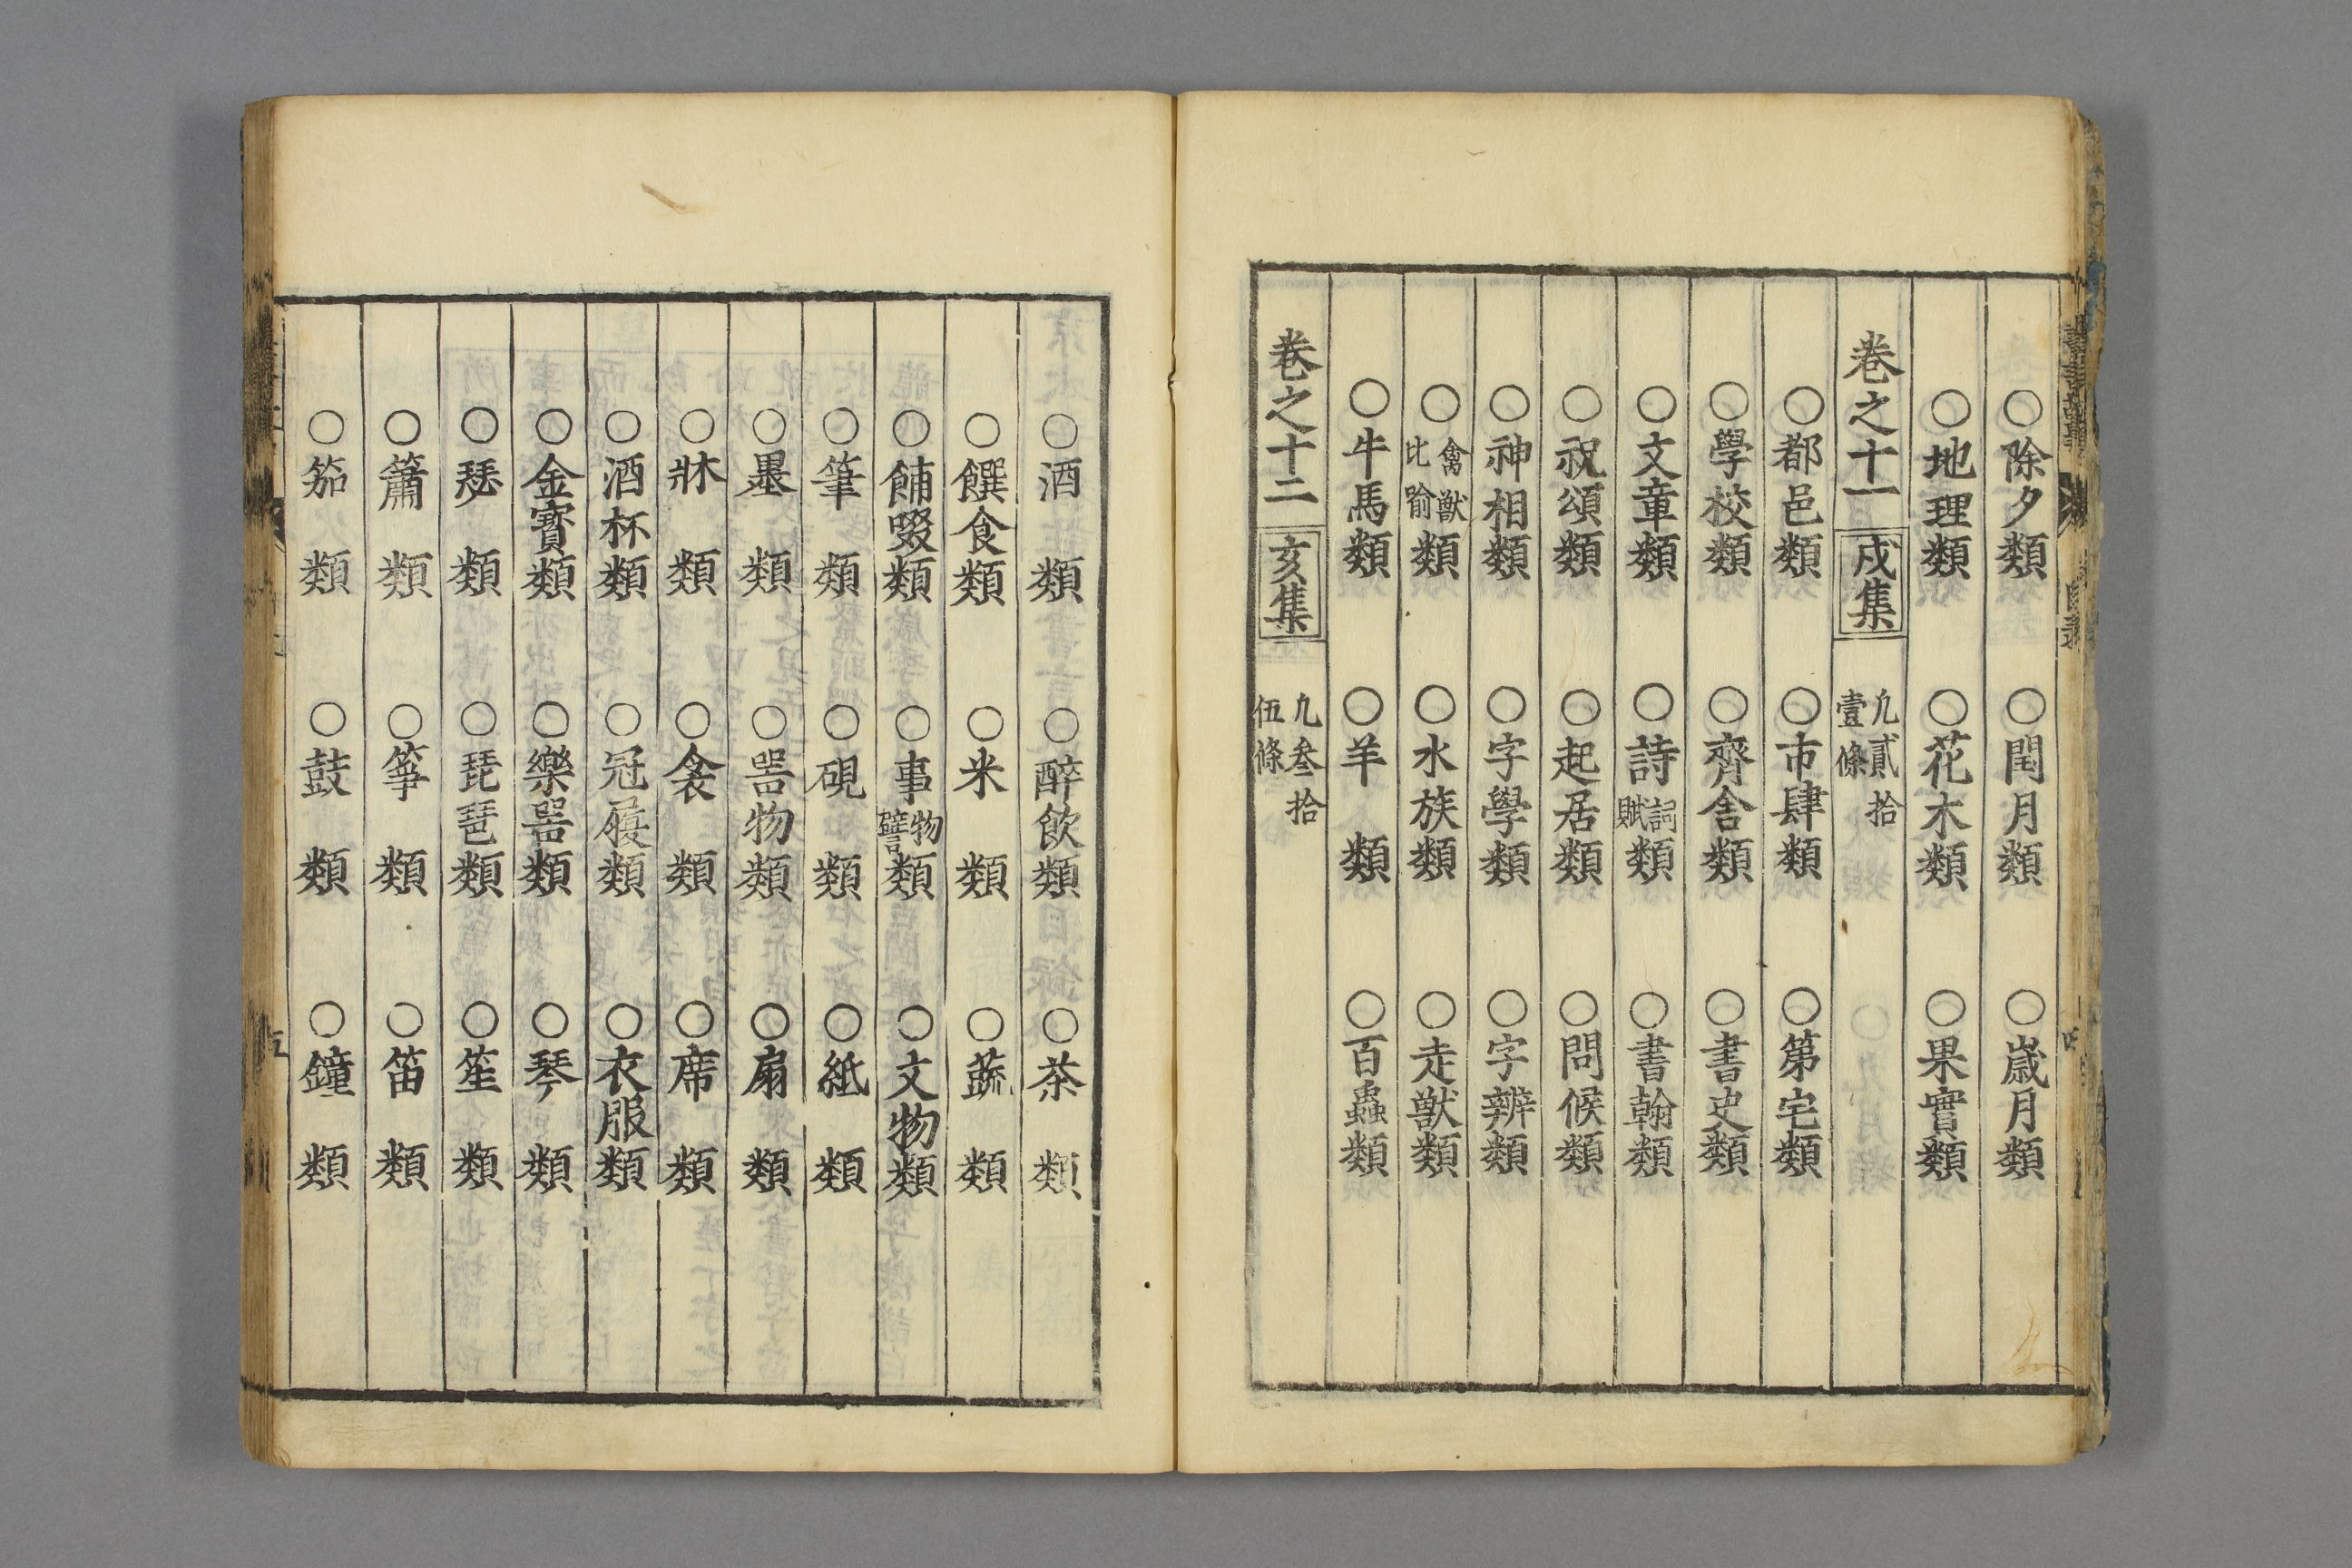 ○除夕類 ○閏月類 ○歲月類
○地理類 ○花木類 ○果實類
卷之十一 戌集 凢貳拾壹條
○都邑類 ○市肆類 ○第宅類
○學校類 ○齊舍類 ○書史類
○文章類 ○詩詞賦類 ○書翰類
○祝頌類 ○起居類 ○問候類
○神相類 ○字學類 ○字辨類
○禽獸比喻類 ○水族類 ○走獸類
○牛馬類 ○羊類 ○百蟲類
卷之十二 亥集 凢叄拾伍條
○酒類 ○醉飲類 ○茶類
○饌食類 ○米類 ○蔬類
○餔啜類 ○事物譬言類 ○文物類
○筆類 ○硯類 ○紙類
○墨類 ○噐物類 ○扇類
○牀類 ○衾類 ○席類
○酒杯類 ○冠屐類 ○衣服類
○金寶類 ○樂噐類 ○琴類
○瑟類 ○琵琶類 ○笙類
○簫類 ○箏類 ○笛類
○笳類 ○鼓類 ○鐘類